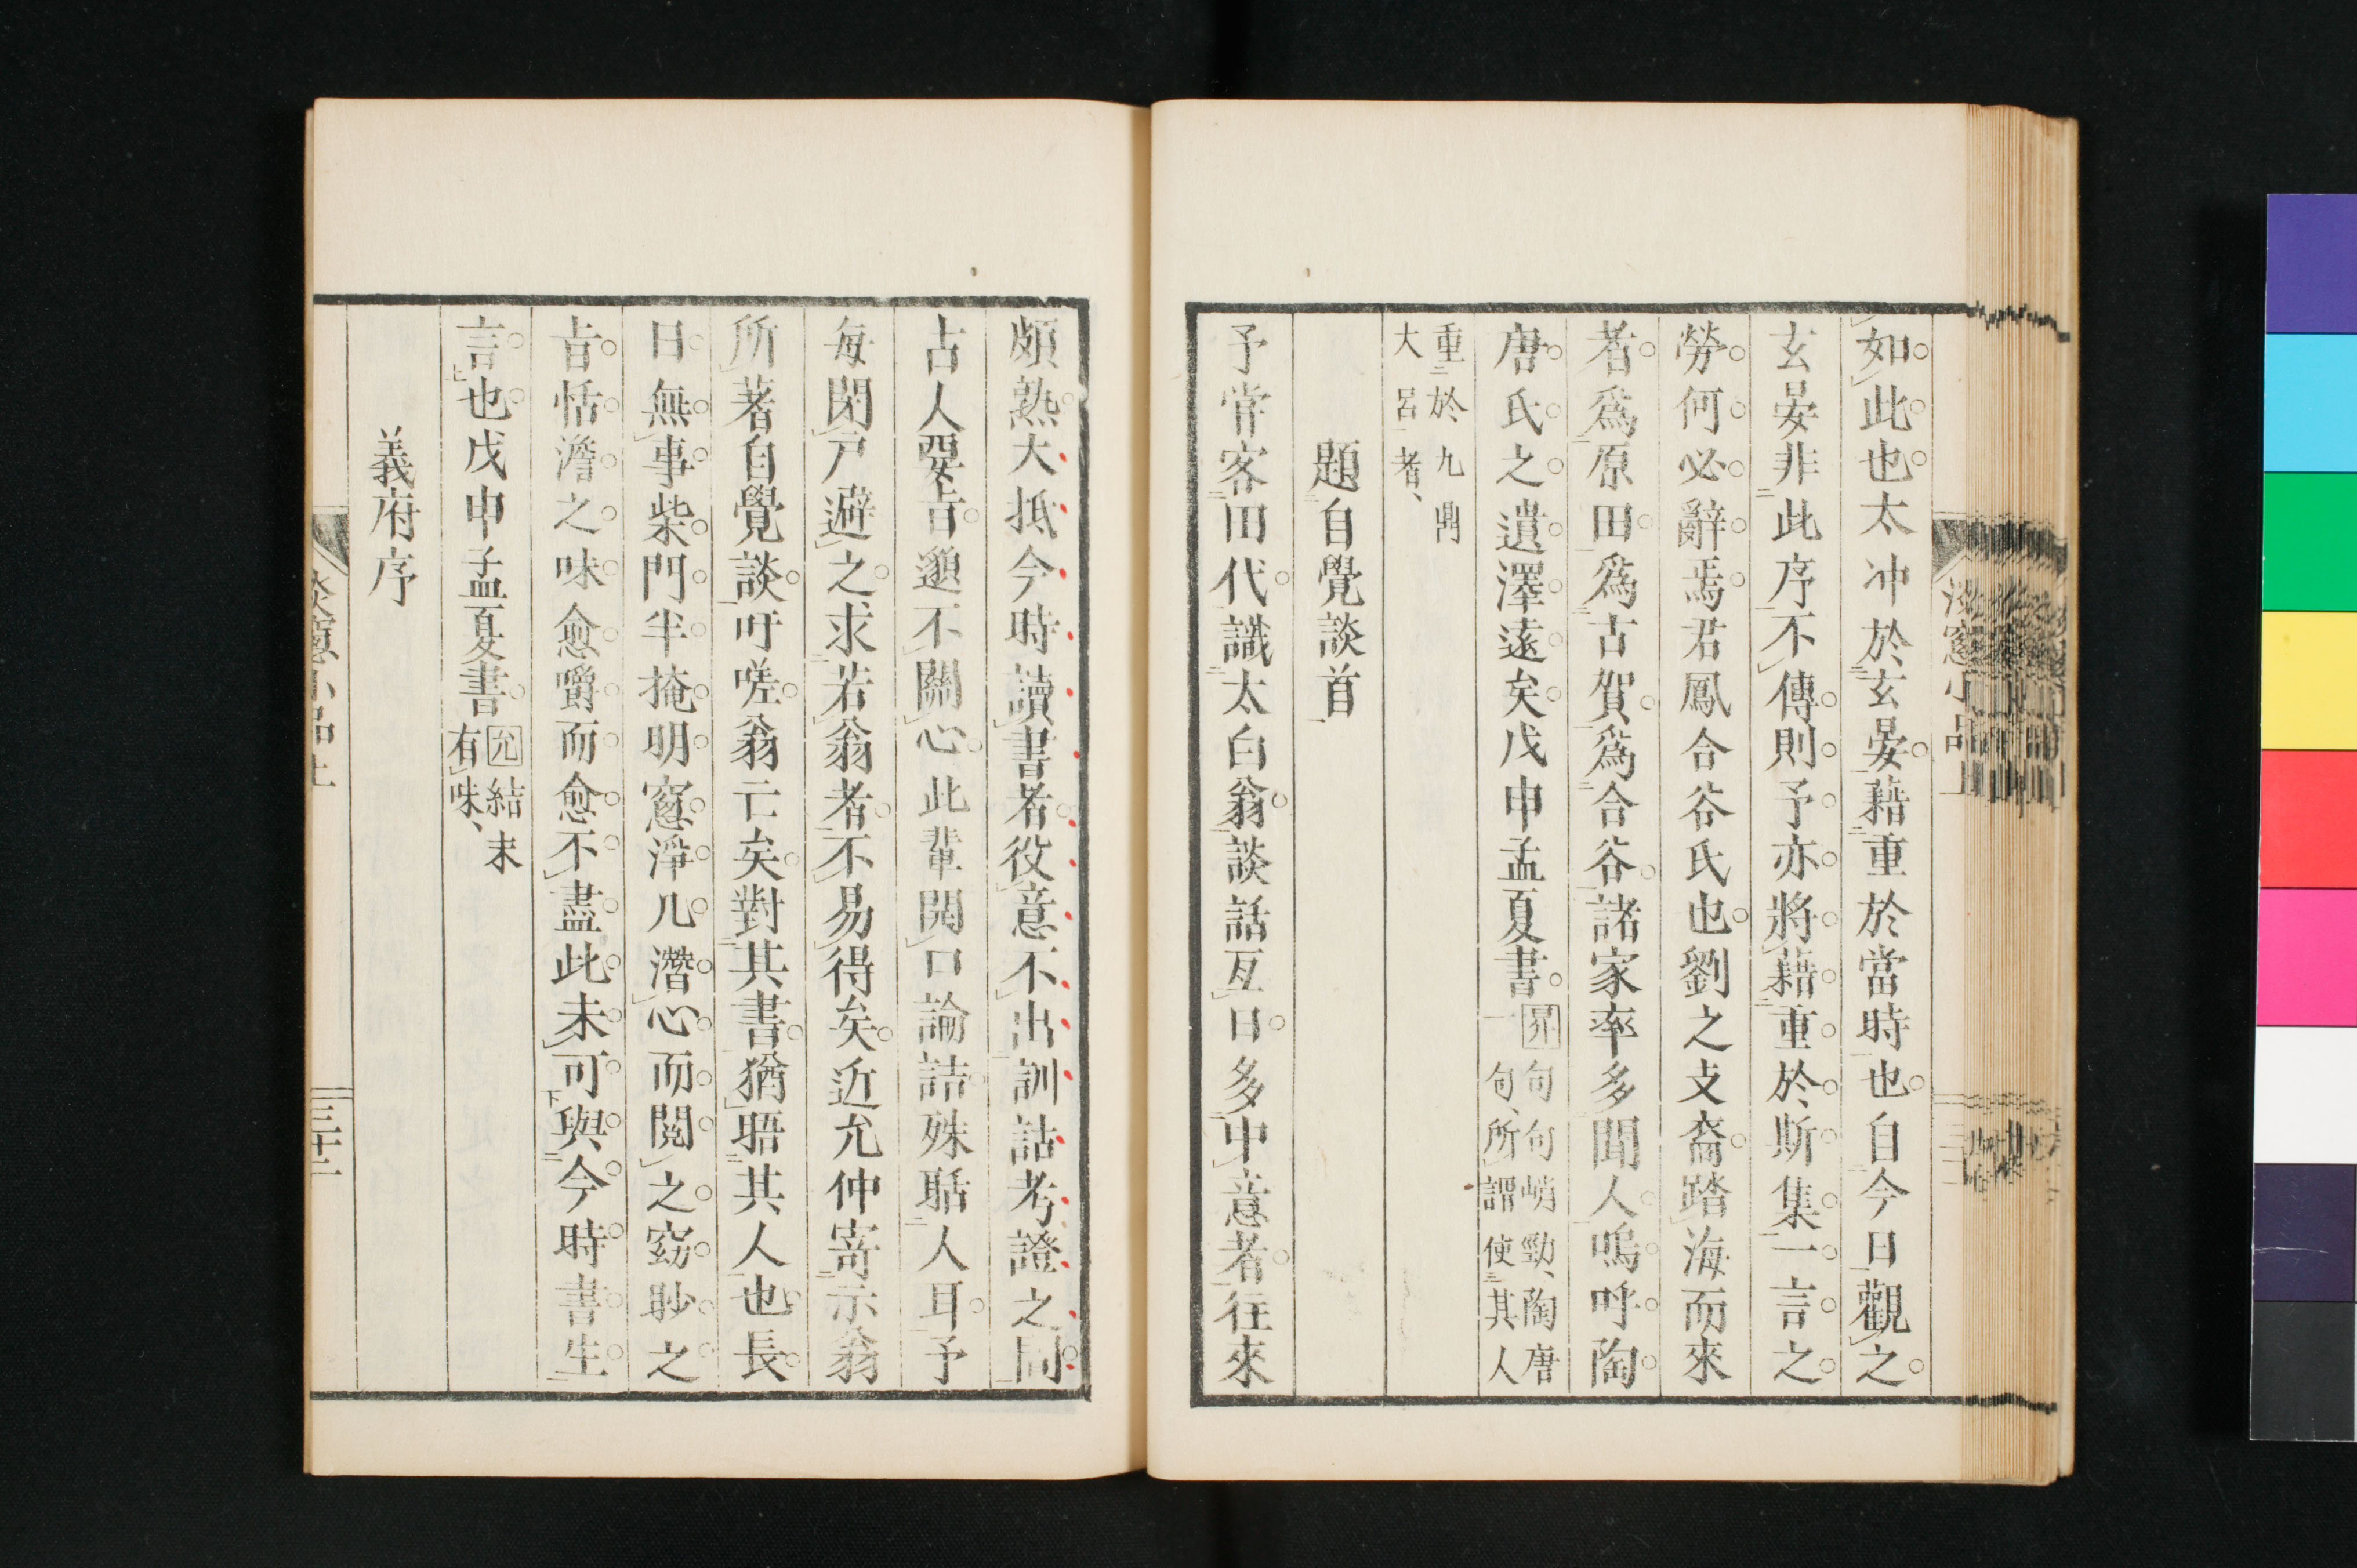 如此也太冲於玄晏藉重於當時也自今日觀之
玄晏非此序不傳則予亦將藉重於斯集一言之
勞何必辭焉君鳳合谷氏也劉之支裔踏海而來
者爲原田爲古賀爲合谷諸家率多聞人嗚呼陶
唐氏之遺澤遠矣戊申孟夏書
昇句句峭勁、陶唐
一句、所謂使其人
重於九鼎
大呂者、
題自覺談首
予嘗客田代識太白翁談話亙日多中意者往來
頗熟大抵今時讀書者役意不出訓詁考證之間
古人要旨邈不關心此輩開口論詰殊聒人耳予
每閉戶避之求若翁者不易得矣近允仲寄示翁
所著自覺談吁嗟翁亡矣對其書猶晤其人也長
日無事柴門半掩明窻淨几潛心而閱之窈眇之
旨恬澹之味愈嚼而愈不盡此未可與今時書生
言也戊申孟夏書
允結末
有味、
義府序
淡窻小品上
三十二